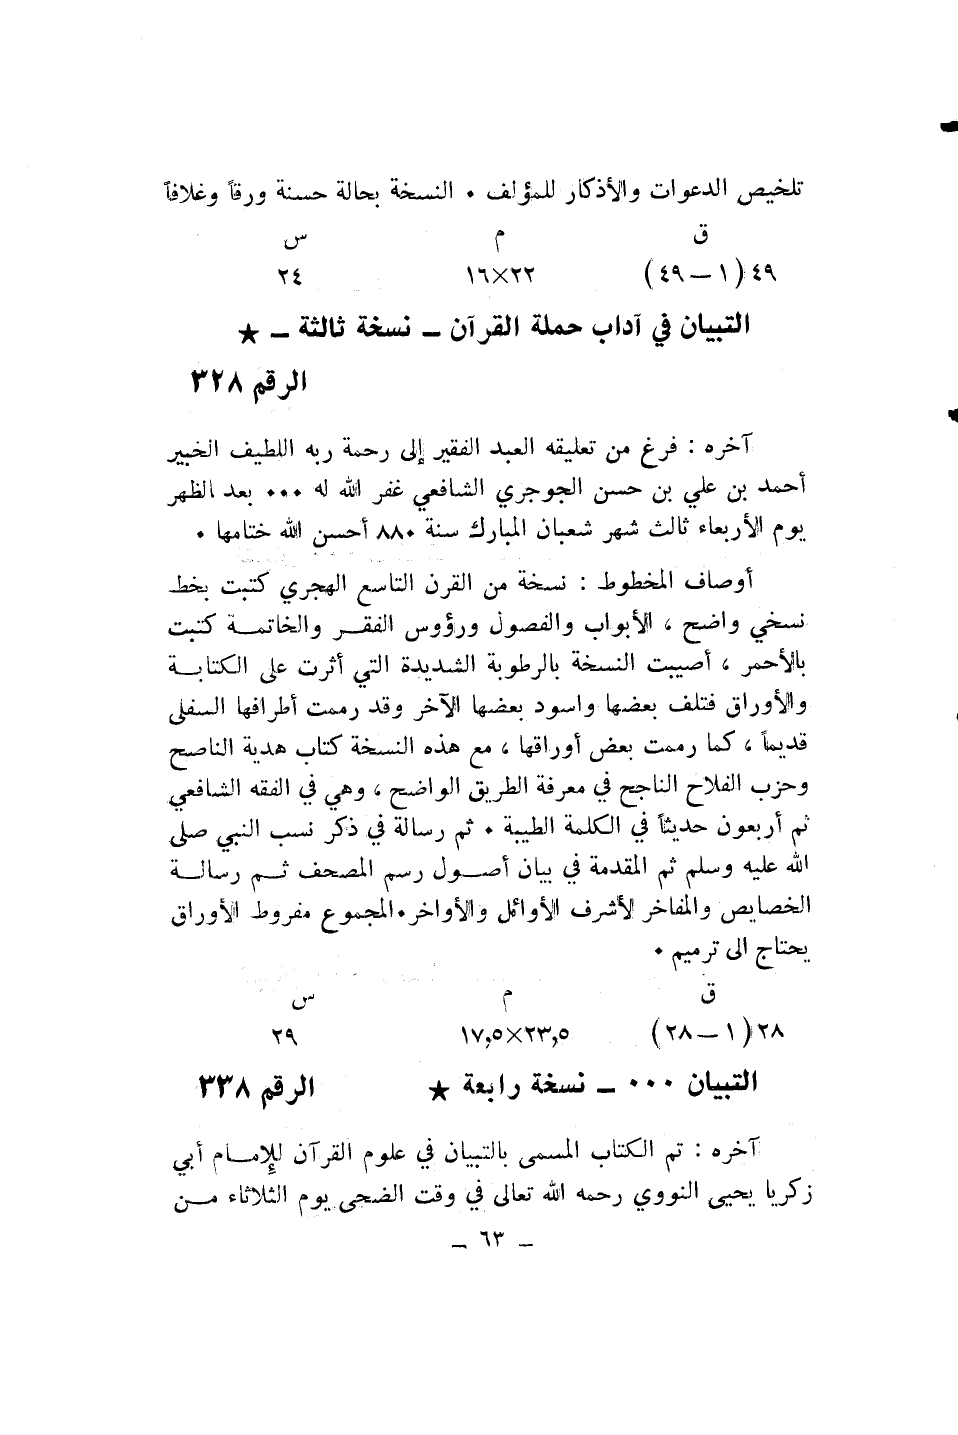 تلخيص الدعوات والأذكار للمؤلف • النسخة بحالة حسنة ورقاً وغلافاً
ق م س
٤٩ (١ – ٤٩) ٢٢×١٦ ٢٤
التبيان في آداب حملة القرآن – نسخة ثالثة – ★
الرقم ٣٢٨
آخره : فرغ من تعليقه العبد الفقير إلى رحمة ربه اللطيف الخبير
أحمد بن علي بن حسن الجوجري الشافعي غفر الله له ••• بعد الظهر
يوم الأربعاء ثالث شهر شعبان المبارك سنة ٨٨٠ أحسن الله ختامها •
أوصاف المخطوط : نسخة من القرن التاسع الهجري كتبت بخط
نسخي واضح ، الأبواب والفصول ورؤوس الفقر والخاتمة كتبت
بالأحمر ، أصيبت النسخة بالرطوبة الشديدة التي أثرت على الكتابة
والأوراق فتلف بعضها واسود بعضها الآخر وقد رممت أطرافها السفلى
قديماً ، كما رممت بعض أوراقها ، مع هذه النسخة كتاب هدية الناصح
وحزب الفلاح الناجح في معرفة الطريق الواضح ، وهي في الفقه الشافعي
ثم أربعون حديثاً في الكلمة الطيبة • ثم رسالة في ذكر نسب النبي صلى
الله عليه وسلم ثم المقدمة في بيان أصول رسم المصحف ثم رسالة
الخصايص والمفاخر لأشرف الأوائل والأواخر•المجموع مفروط الأوراق
يحتاج الى ترميم •
ق م س
٢٨ (١ – ٢٨) ٢٣,٥×١٧,٥ ٢٩
التبيان ••• – نسخة رابعة ★ الرقم ٣٣٨
آخره : تم الكتاب المسمى بالتبيان في علوم القرآن للإمام أبي
زكريا يحيى النووي رحمه الله تعالى في وقت الضحى يوم الثلاثاء من
– ٦٣ –